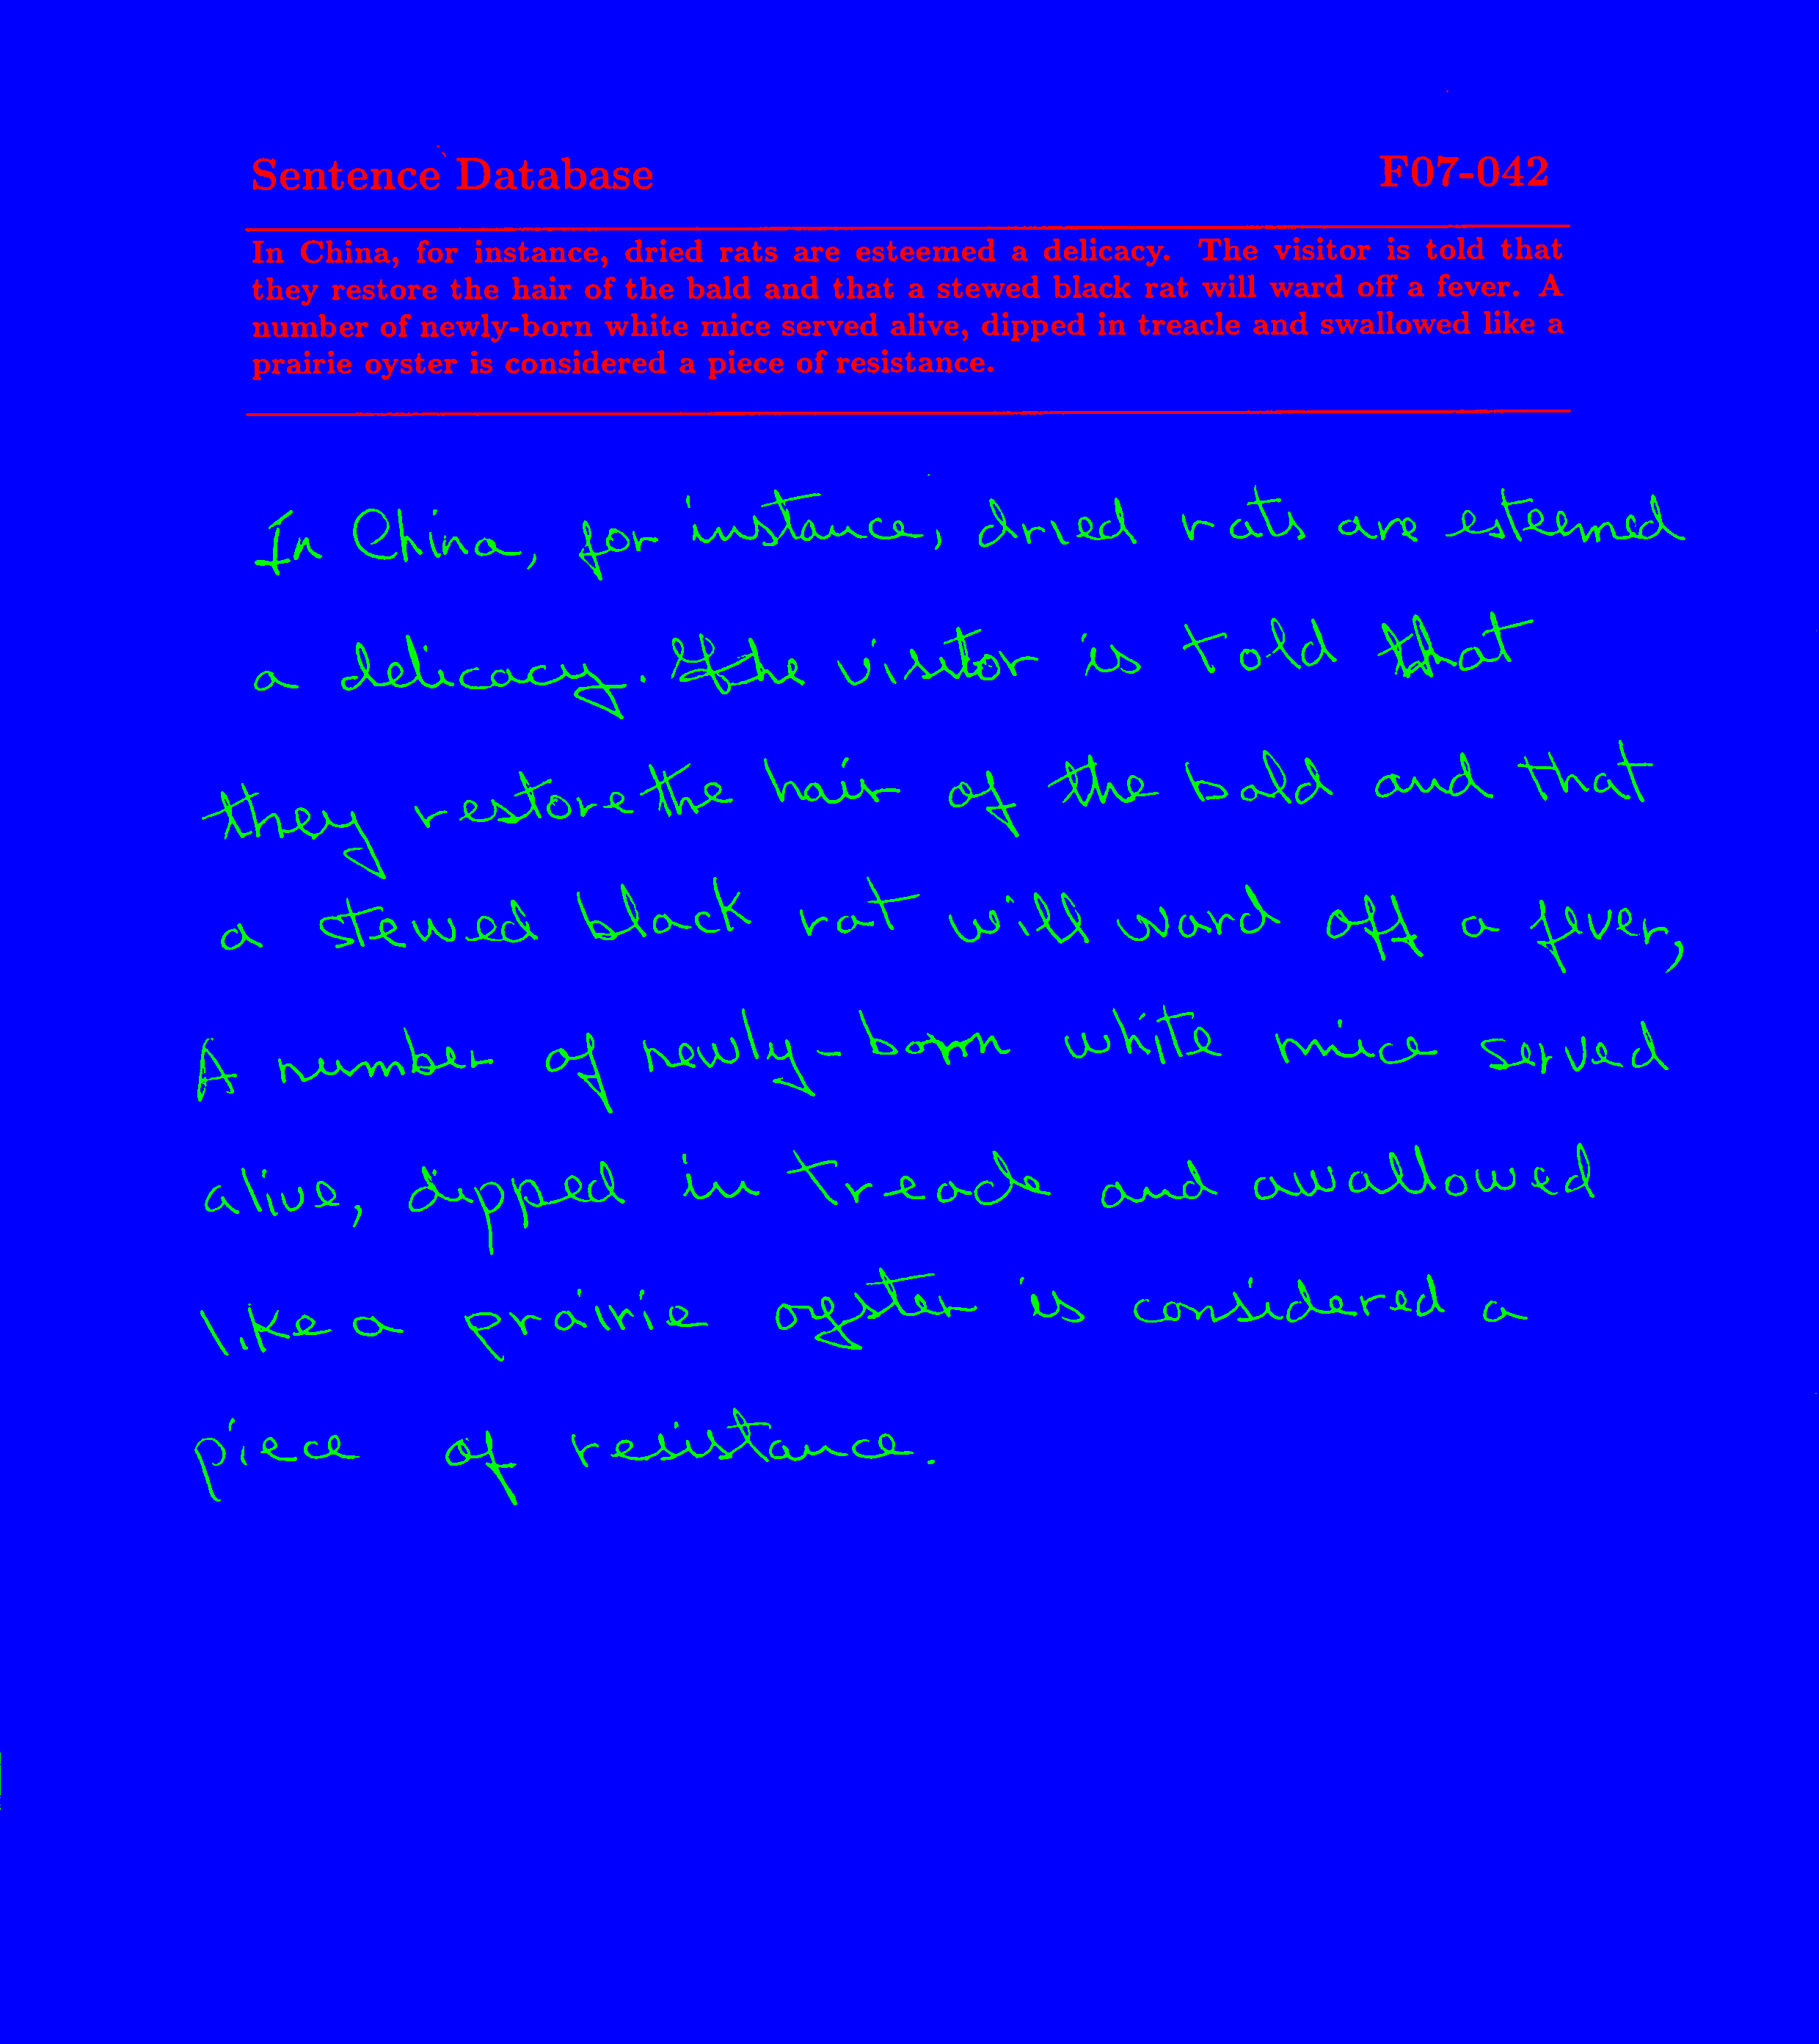 Sentence Database F07-042
In China, for instance, dried rats are esteemed a delicacy. The visitor is told that
they restore the hair of the bald and that a stewed black rat will ward off a fever. A
number of newly-born white mice served alive, dipped in treacle and swallowed like a
prairie oyster is considered a piece of resistance.
In China, for instance, dried rats are esteemed
a delicacy. The visitor is told that
they restore the hair of the bald and that
a stewed black rat will ward off a fever,
A number of newly-born white mice served
alive, dipped in treacle and swallowed
like a prairie oyster is considered a
piece of resistance.